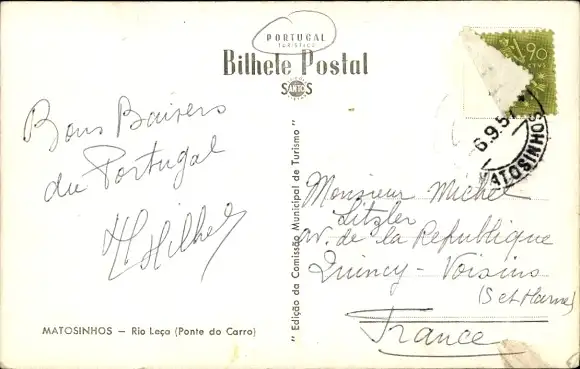 PORTUGAL
TURÍSTICO
Bilhete Postal
SANTOS
90
CTVS
6.9.57
MATOSINHOS
Bons Baisers
du Portugal
"Edição da Comissão Municipal de Turismo"
Monsieur Michel
Litzler
av. de la Republique
Quincy - Voisins
(S et Marne)
France
MATOSINHOS — Rio Leça (Ponte do Carro)